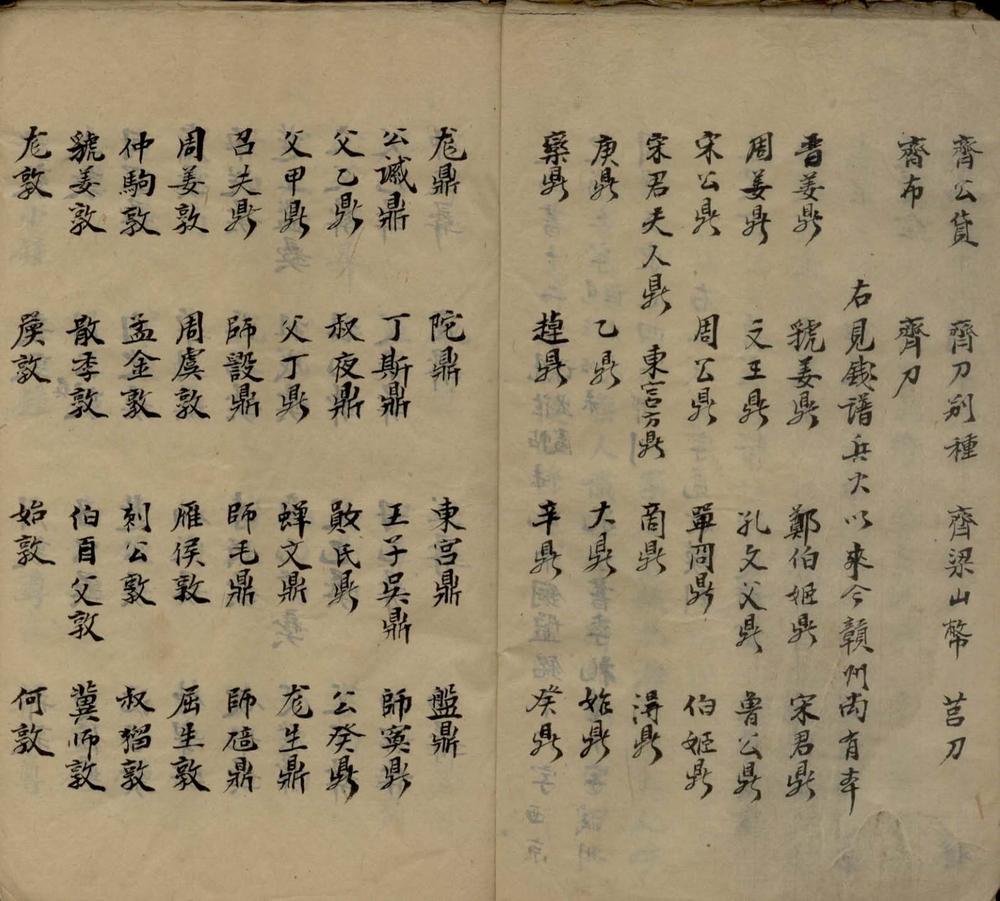 齊公貨 齊刀別種 齊梁山幣 莒刀
齊布 齊刀
右見錢譜兵火以來今贛州尚有本
晋姜鼎 虢姜鼎 鄭伯姬鼎 宋君鼎
周姜鼎 文王鼎 孔文父鼎 魯公鼎
宋公鼎 周公鼎 單冏鼎 伯姬鼎
宋君夫人鼎 東宮方鼎 商鼎 鼎
庚鼎 乙鼎 大鼎 始鼎
欒鼎 趠鼎 辛鼎 癸鼎
尨鼎 陀鼎 東宮鼎 盤鼎
公諴鼎 丁斯鼎 王子吳鼎 師寅鼎
父乙鼎 叔夜鼎 敃氏鼎 公癸鼎
父甲鼎 父丁鼎 蟬文鼎 尨生鼎
召夫鼎 師設鼎 師毛鼎 師鼎
周姜敦 周虞敦 雁侯敦 屈生敦
仲駒敦 孟金敦 刺公敦 叔敦
虢姜敦 散季敦 伯百父敦 冀师敦
尨敦 敦 始敦 何敦